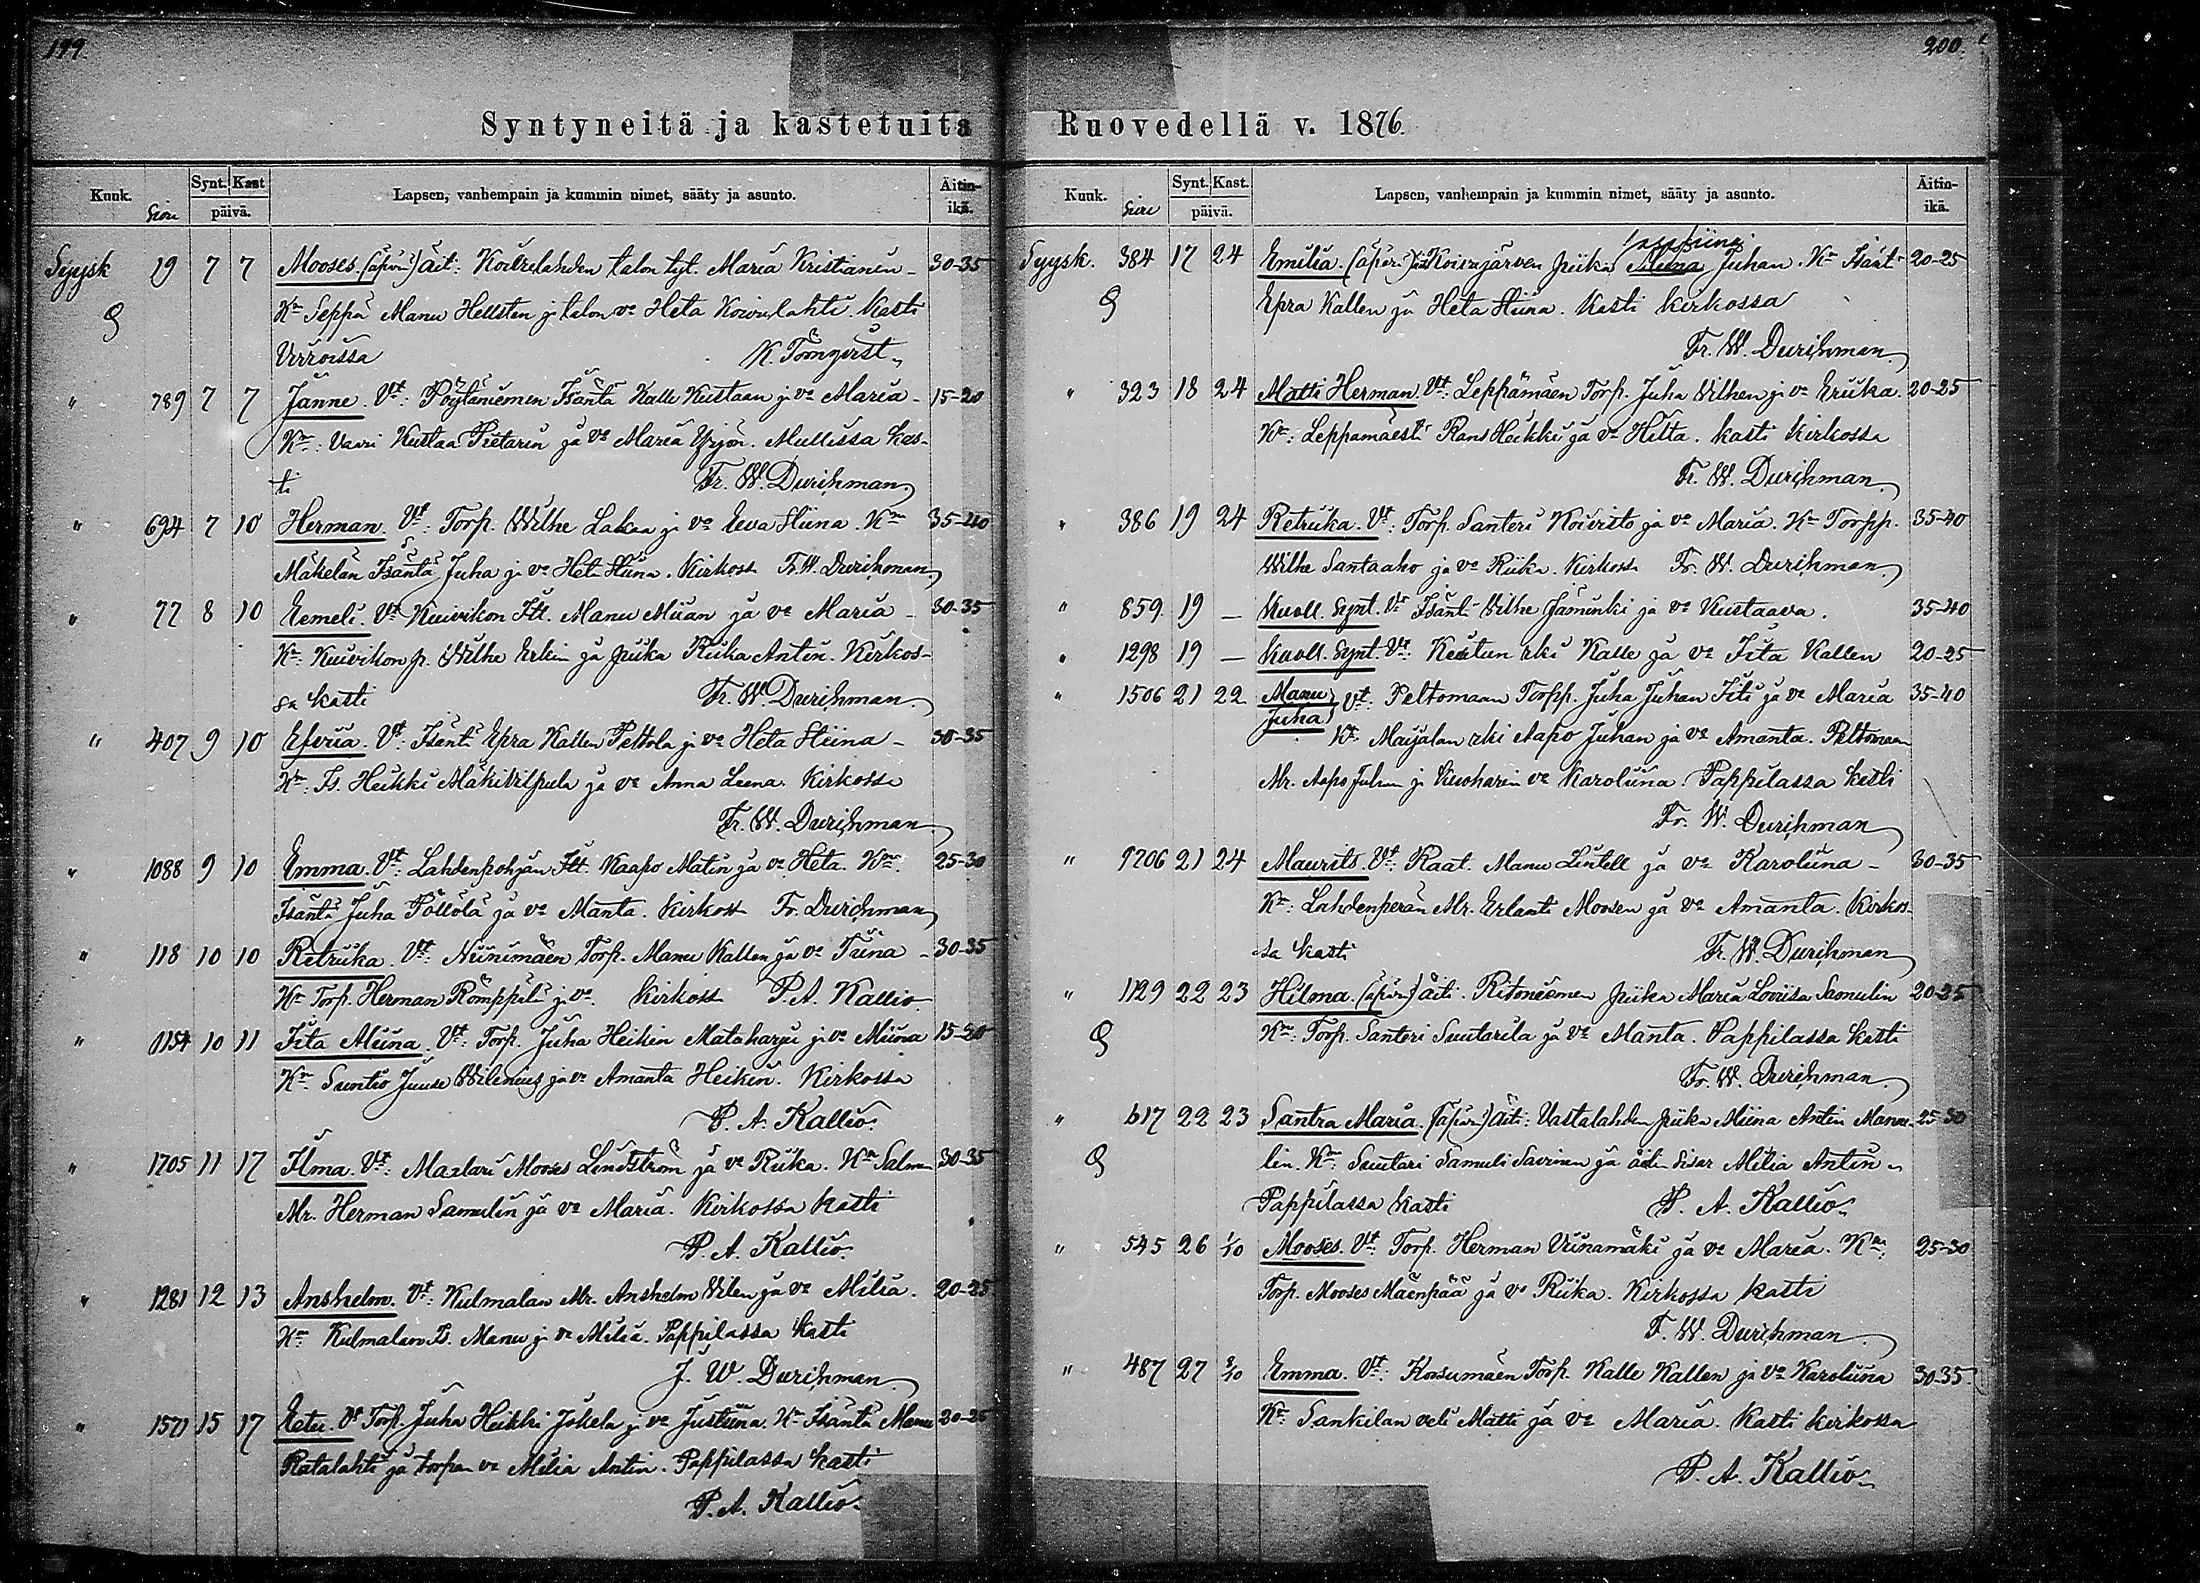 199.
Syntyneitä ja kastetuita
Kuuk. Sivu Synt. Kast päivä. Lapsen, vanhempain ja kummin nimet, sääty ja asunto. Äitin-ikä.
Syysk 19 7 7 Mooses (äpärä) äit: talon tyt. Maria Kristianin 30-35
Kn Seppä Manu Hellsten j talon vo Heta Koivulahti. Kasti
Virroissa K. Törnqvist
" 789 7 7 Janne. Vt: Pöytäniemen Isäntä Kalle Kustaan j. vo Maria - 15-20
Kn: Vaari Kustaa Pietarin ja vo Maria Yrjön. Mullissa kas-
ti Fr. W. Durchman
" 694 7 10 Herman. Vt: Torp. Wilhe j. vo Eeva Stiina. Kn 35-40
Mäkelän Isäntä Juha j vo Heta Stiina. Kirkoss Fr. W. Durchman
" 77 8 10 Eemeli. Vt Kuivikon Itl. Manu Miian ja vo Maria - 30-35
Kn: Kuivikon p. Wilhe Erkin ja piika Riika Antin. Kirkos-
sa kasti Fr. W. Durchman
" 407 9 10 Efvria. Vt: Isäntä Epra Kallen Pettola j. vo Heta Stiina - 30-35
Kn: Is. Heikki Mäkivilpula ja vo Anna Leena. Kirkossa
Fr. W. Durchman
" 1088 9 10 Emma. Vt: Lahdenpohjan Itl. Kaapo Matin ja vo Heta. Kn: 25-30
Isäntä Juha Pöllölä ja vo Manta. Kirkoss Fr. Durchman
" 118 10 10 Retriika. Vt: Niinimäen Torp. Manu Kallen ja vo Tiina - 30-35
Kn Torp. Herman Römppiti j. vo. Kirkoss P. A. Kallio
" 1154 10 11 Iita Miina. Vt: Torp. Juha Heikin Mataharju j. vo Miina 15-20
Kn Suntio Juuse Wilenius ja vo Amanta Heikin. Kirkossa
P. A. Kallio.
" 1705 11 17 Ilma. Vt: Maalari Mooses Lindström ja vo Riika. Kn Salmen 30-35
Mr. Herman Samulin ja vo Maria. Kirkossa kasti
P. A. Kallio.
" 1281 12 13 Anshelm. Vt: Kulmalan Mr. Anshelm Wilen ja vo Milia. 20-25
Kn Kulmalan Is. Manu j vo Milia. Pappilassa kasti
J. W. Durchman
" 1571 15 17 Eetu. Vt Torp. Juha Heikki Jokela j. vo Justiina. Kn Isäntä Manu 20-25
Ratalahti ja torpan vo Milia Antin. Pappilassa kasti
P. A. Kallio.
200.
Ruovedellä v. 1876.
Kuuk. Sivu Synt. Kast. päivä. Lapsen, vanhempain ja kummin nimet, sääty ja asunto. Äitin-ikä.
Syysk. 384 17 24 Emilia. (äpärä) Koirajärven piika Miina Juhan. Kn Isänt 20-25
Epra Kallen ja Heta Stiina. Kasti kirkossa
Fr. W. Durchman
" 323 18 24 Matti Herman. Vt: Leppämäen Torp. Juha Wilhen j. vo Eriika. 20-25
Kn: Leppämäestä Rans Heikki ja vo Hilta. Kasti Kirkossa
Fr. W. Durchman
" 386 19 24 Retriika. Vt: Torp. Santeri Koivisto ja vo Maria. Kn Torpp. 35-40
Wilhe Santaaho ja vo Riika. Kirkossa Fr. W. Durchman
" 859 19 - Kuoll. Synt. Vt Isänt Wilhe Jäminki ja vo Kustaava. 35-40
" 1298 19 - Kuoll. Synt. Vt: rki Kalle ja vo Iita Kallen 20-25
" 1506 21 22 Manu Juha Vt: Peltomaan Torpp. Juha Juhan ja vo Maria 35-40
Kn: Maijalan rki Aapo Juhan ja vo Amanta. Peltomaan
Mr. Aapo Juhan j. Kuoharin vo Karoliina. Pappilassa kasti
Fr. W. Durchman
" 1706 21 24 Maurits. Vt: Raat. Manu Lintell ja vo Karoliina - 30-35
Kn: Lahdenperän Mr. Erlanti Moosen ja vo Amanta. Kirkos-
sa kasti Fr. W. Durchman
" 1129 22 23 Hilma. (äpärä) äiti. Ritoniemen piika Maria Loviisa Samulin 20-25
Kn: Torp. Santeri Suutarila ja vo Manta. Pappilassa kasti
Fr. W. Durchman
" 617 22 23 Santra Maria. (äpärä) äiti: Vastalahden piika Miina Antin Manne- 25-30
lin. Kn: Suutari Samuli Savinen ja äidin sisar Milia Antin.
Pappilassa kasti P. A. Kallio.
" 545 26 1/10 Mooses. Vt: Torp. Herman Viinamäki ja vo Maria. Kn: 25-30
Torp. Mooses Mäenpää ja vo Riika. Kirkossa kasti
F. W. Durchman
" 487 27 2/10 Emma. Vt: Korsumäen Torp. Kalle Kallen ja vo Karoliina 30-35.
Kn: Sankilan veli Matti ja vo Maria. Kasti kirkossa
P. A. Kallio.